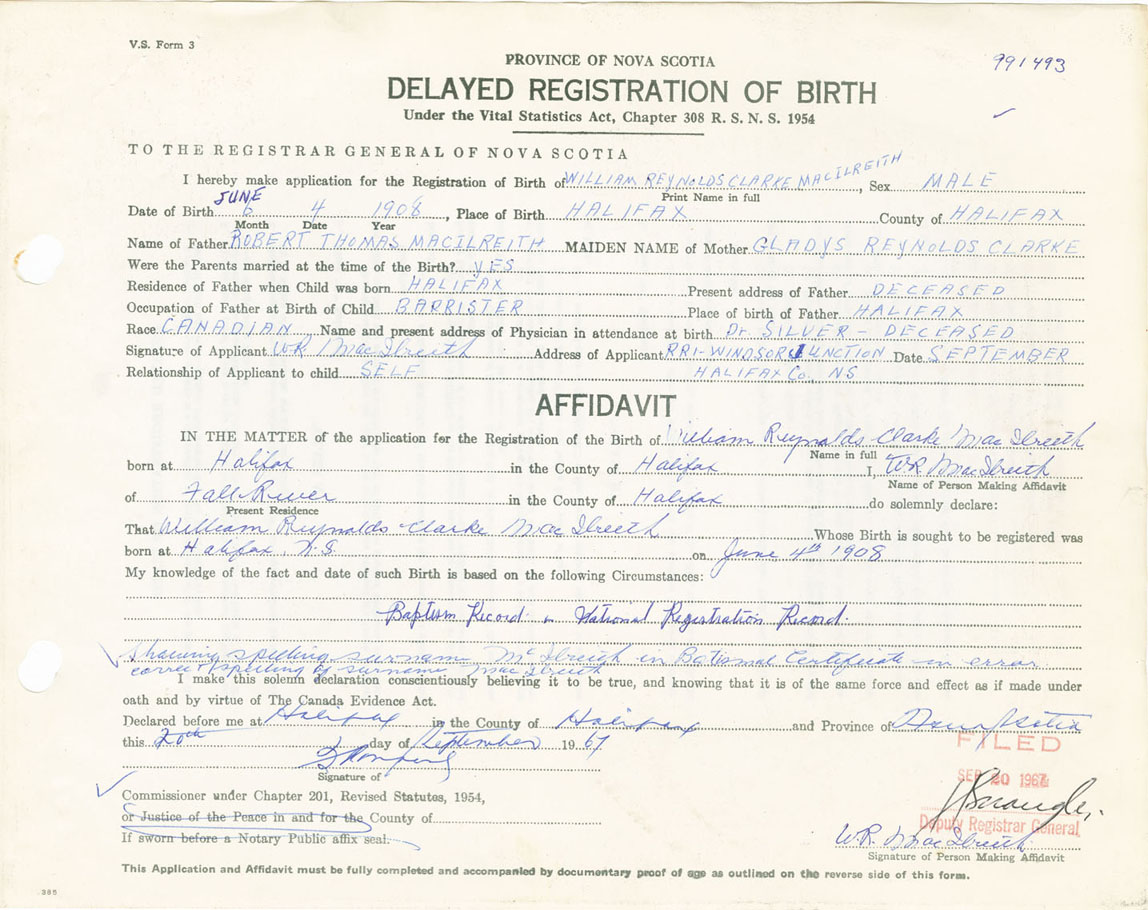 V.S. Form 3
991493
PROVINCE OF NOVA SCOTIA
DELAYED REGISTRATION OF BIRTH
Under the Vital Statistics Act, Chapter 308 R. S. N. S. 1954
TO THE REGISTRAR GENERAL OF NOVA SCOTIA
I hereby make application for the Registration of Birth of WILLIAM REYNOLDS CLARKE MACILREITH, Sex MALE
Print Name in full
JUNE
Date of Birth 6 4 1908, Place of Birth HALIFAX County of HALIFAX
Month Date Year
Name of Father ROBERT THOMAS MACILREITH MAIDEN NAME of Mother GLADYS REYNOLDS CLARKE
Were the Parents married at the time of the Birth? YES
Residence of Father when Child was born HALIFAX Present address of Father DECEASED
Occupation of Father at Birth of Child BARRISTER Place of birth of Father HALIFAX
Race CANADIAN Name and present address of Physician in attendance at birth Dr. SILVER - DECEASED
Signature of Applicant W.R. MacIlreith Address of Applicant RR1-WINDSOR JUNCTION Date SEPTEMBER
Relationship of Applicant to child SELF HALIFAX Co. NS
AFFIDAVIT
IN THE MATTER of the application for the Registration of the Birth of William Reynolds Clarke MacIlreith
Name in full
born at Halifax in the County of Halifax I, W.R. MacIlreith
Name of Person Making Affidavit
of Fall River in the County of Halifax do solemnly declare:
Present Residence
That William Reynolds Clarke MacIlreith Whose Birth is sought to be registered was
born at Halifax, N.S. on June 4th 1908
My knowledge of the fact and date of such Birth is based on the following Circumstances:
Baptism Record National Registration Record.
Showing spelling surname McIlreith in Batismal Certificate in error
correct spelling of surname MacIlreith
I make this solemn declaration conscientiously believing it to be true, and knowing that it is of the same force and effect as if made under
oath and by virtue of The Canada Evidence Act.
Declared before me at Halifax in the County of Halifax and Province of Nova Scotia
this 20th day of September 1967
FILED
Signature of
SEP 20 1967
Commissioner under Chapter 201, Revised Statutes, 1954,
or Justice of the Peace in and for the County of
Deputy Registrar General
If sworn before a Notary Public affix seal.
W.R. MacIlreith
Signature of Person Making Affidavit
This Application and Affidavit must be fully completed and accompanied by documentary proof of age as outlined on the reverse side of this form.
385